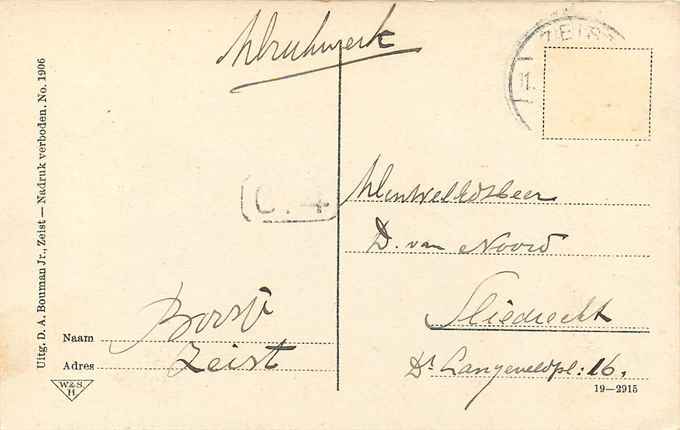 Drukwerk
ZEIST
11.
Uitg. D. A. Bouman Jr., Zeist — Nadruk verboden. No. 1906
C. 4
Den WelEd. Heer
D. van Noord
Sliedrecht
Dr. Langeveldpl: 16.
Naam
Adres Zeist
W&S.
H
19—2915